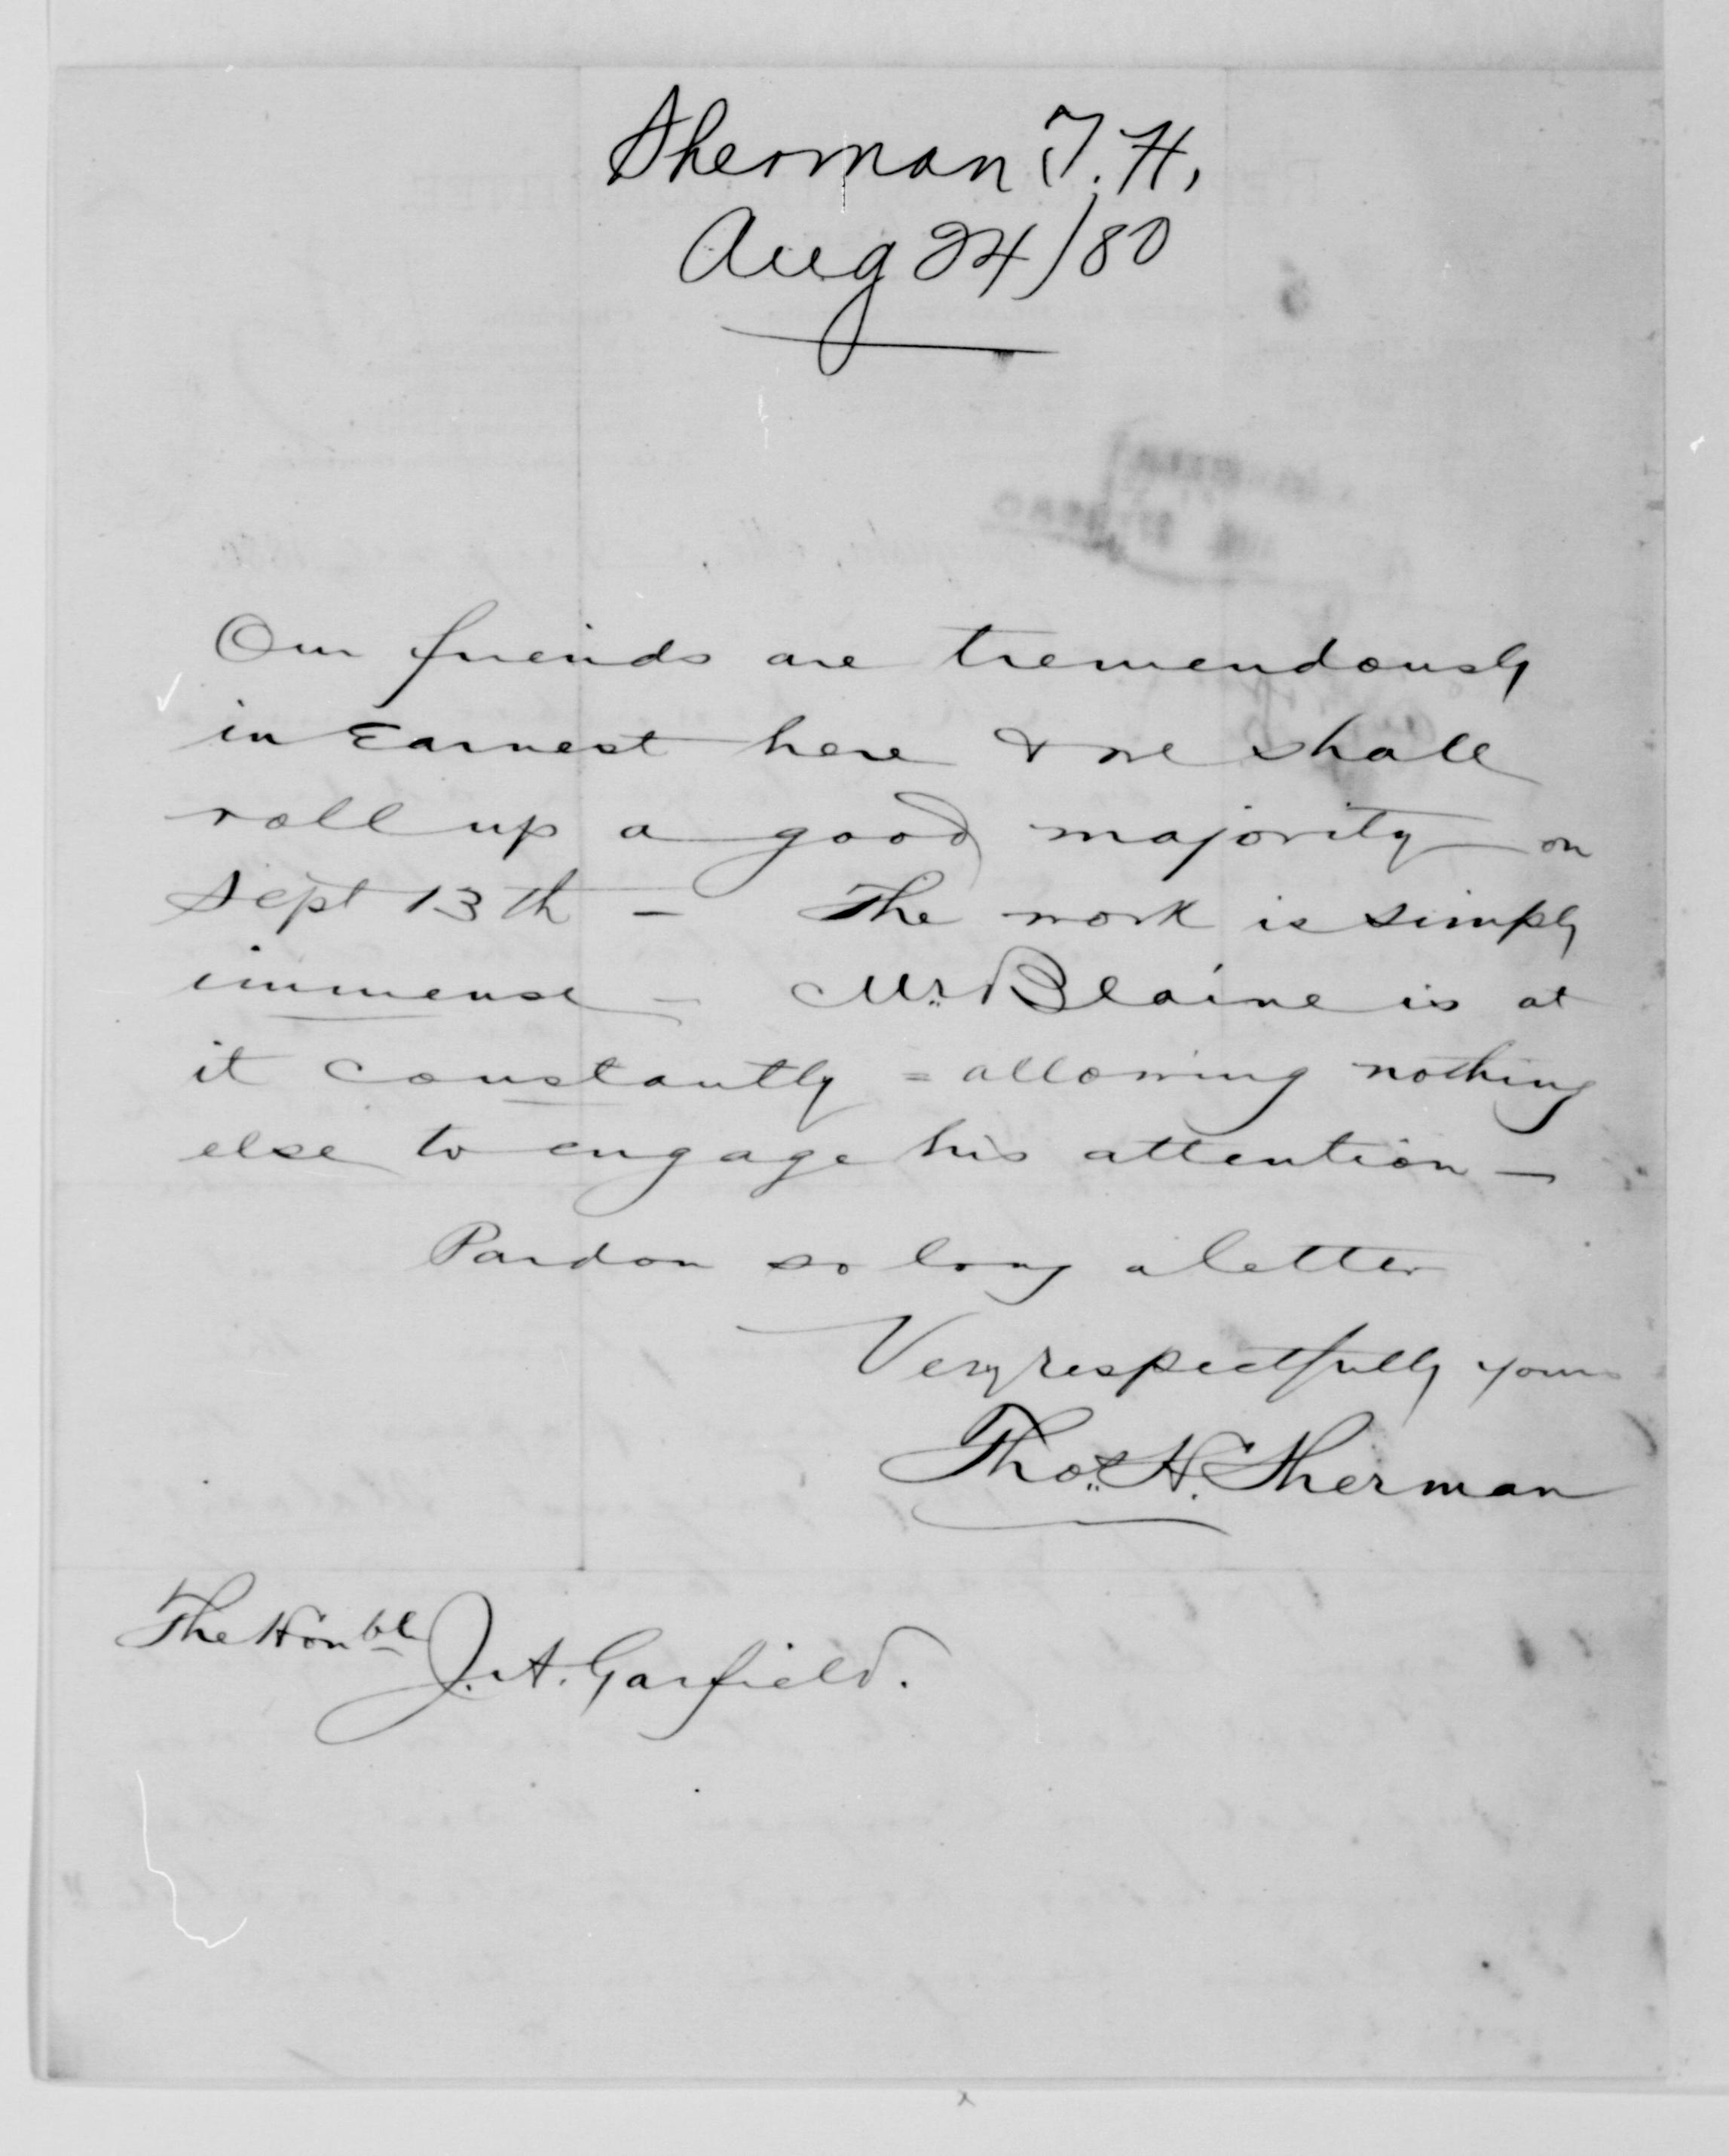 Sherman T. H.
Aug 24/80
Our friends are tremendously
in Earnest here & we shall
roll up a good majority on
Sept 13th –
The work is simply
immense – Mr. Blaine is at
it constantly = allowing nothing
else to engage his attention –
Pardon so long a letter
Very respectfully yours
Thos. H. Sherman
The Honble J. A. Garfield.